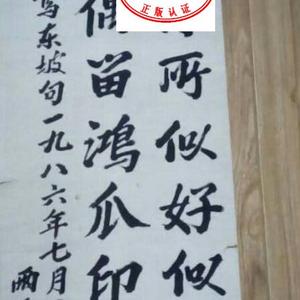 正版认证
所似好似
偶留鸿爪印
写东坡句一九八六年七月
雨